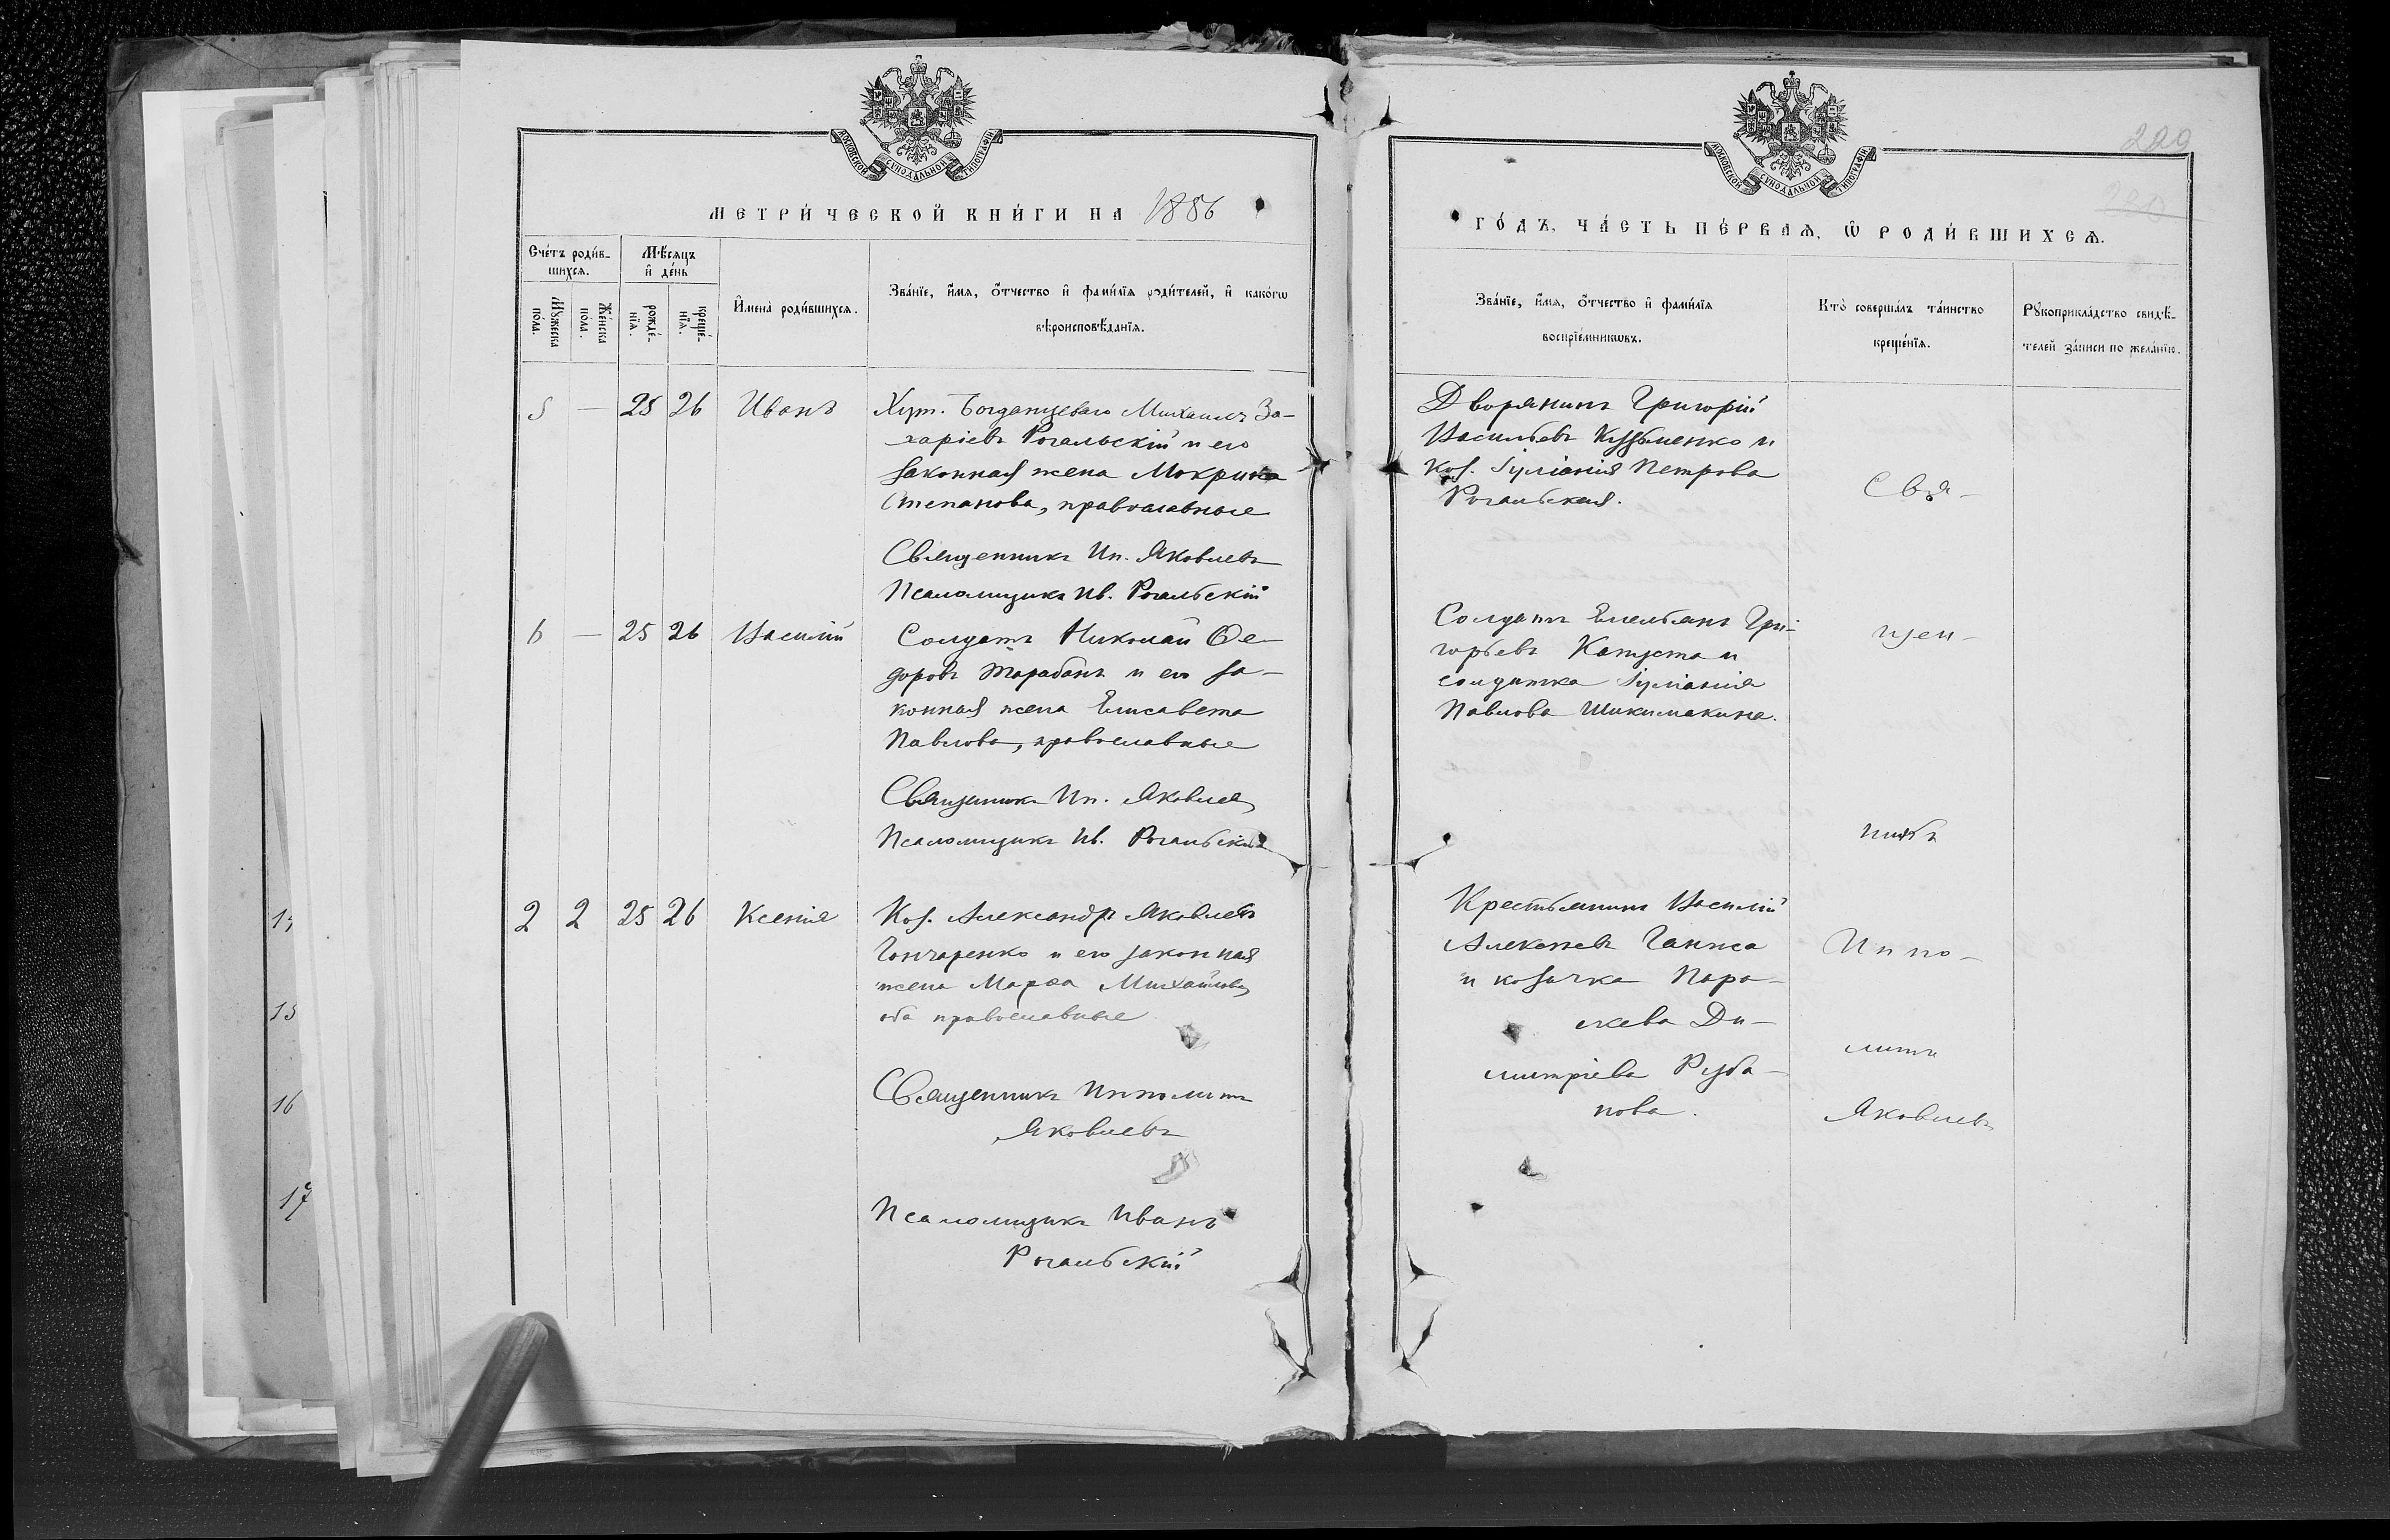 МОСКОВСКОЙ СУНОДАЛЬНОЙ ТИПОГРАФІИ
МЕТРИ́ЧЕСКОЙ КНИ́ГИ НА 1886
Сче́тъ роди́в-
шихсѧ.
Мѣ́сѧцъ
и҆ де́нь
Мꙋ́жеска
по́ла.
Же́нска
по́ла.
рожде́-
нїѧ.
креще́-
нїѧ.
И҆мена̀ роди́вшихсѧ.
Зва́нїе, и҆́мѧ, ѻ҆́тчество и҆ фами́лїѧ роди́телей, и҆ како́гѡ
вѣроисповѣ́данїѧ.
5 — 25 26 Иванъ
Хут. Богданцеваго Михаилъ За-
харіевъ Рогальскій и его
законная жена Мокрина
Степанова, православные
Священникъ Ип. Яковлевъ
Псаломщикъ Ив. Рогальскій
6 — 25 26 Василій
Солдатъ Николай Ѳе-
доровъ Тарабанъ и его за-
конная жена Елисавета
Павлова, православные
Священникъ Ип. Яковлевъ
Псаломщикъ Ив. Рогальскій
2 2 25 26 Ксенія
Коз. Александръ Яковлевъ
Гончаренко и его законная
жена Марѳа Михайлова,
оба православные
Священникъ Ипполитъ
Яковлевъ
Псаломщикъ Иванъ
Рогальскій
15
16
17
МОСКОВСКОЙ СУНОДАЛЬНОЙ ТИПОГРАФІИ
229
ГО́ДЪ, ЧА́СТЬ ПЕ́РВАѦ, Ѡ҆ РОДИ́ВШИХСѦ.
Зва́нїе, и҆́мѧ, ѻ҆́тчество и҆ фами́лїѧ
воспрїе́мникѡвъ.
Кто̀ соверша́лъ та́инство
креще́нїѧ.
Рꙋкоприкла́дство свидѣ́-
телей за́писи по жела́нїю.
Дворянинъ Григорій
Васильевъ Кузьменко и
Коз. Іуліанія Петрова
Рогальская.
Солдатъ Емельянъ Гри-
горьевъ Капуста и
солдатка Іуліанія
Павлова
Крестьянинъ Василій
Алексѣевъ Ганжа
и козачка Пара-
скева Ди-
митріева Руба-
нова.
Свя-
щен-
никъ
Иппо-
литъ
Яковлевъ